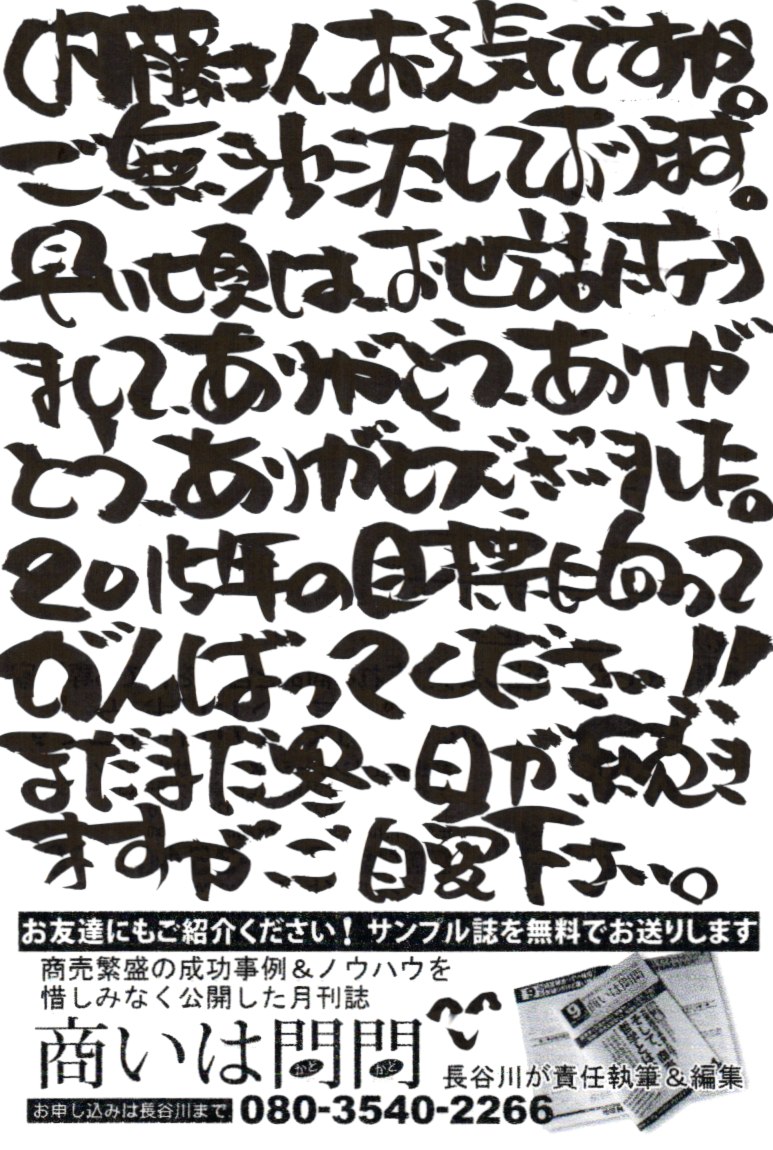 内藤さん、お元気ですか。
ご無沙汰しております。
早い頃は、お世話んなり
まして、ありがとう、ありが
とう、ありがとうございました。
2015年の目標に向って
がんばってください!!
まだまだ寒い日が続き
ますが、ご自愛下さい。
お友達にもご紹介ください! サンプル誌を無料でお送りします
商売繁盛の成功事例&ノウハウを
惜しみなく公開した月刊誌
商いは門門
かど かど
長谷川が責任執筆&編集
お申し込みは長谷川まで 080-3540-2266